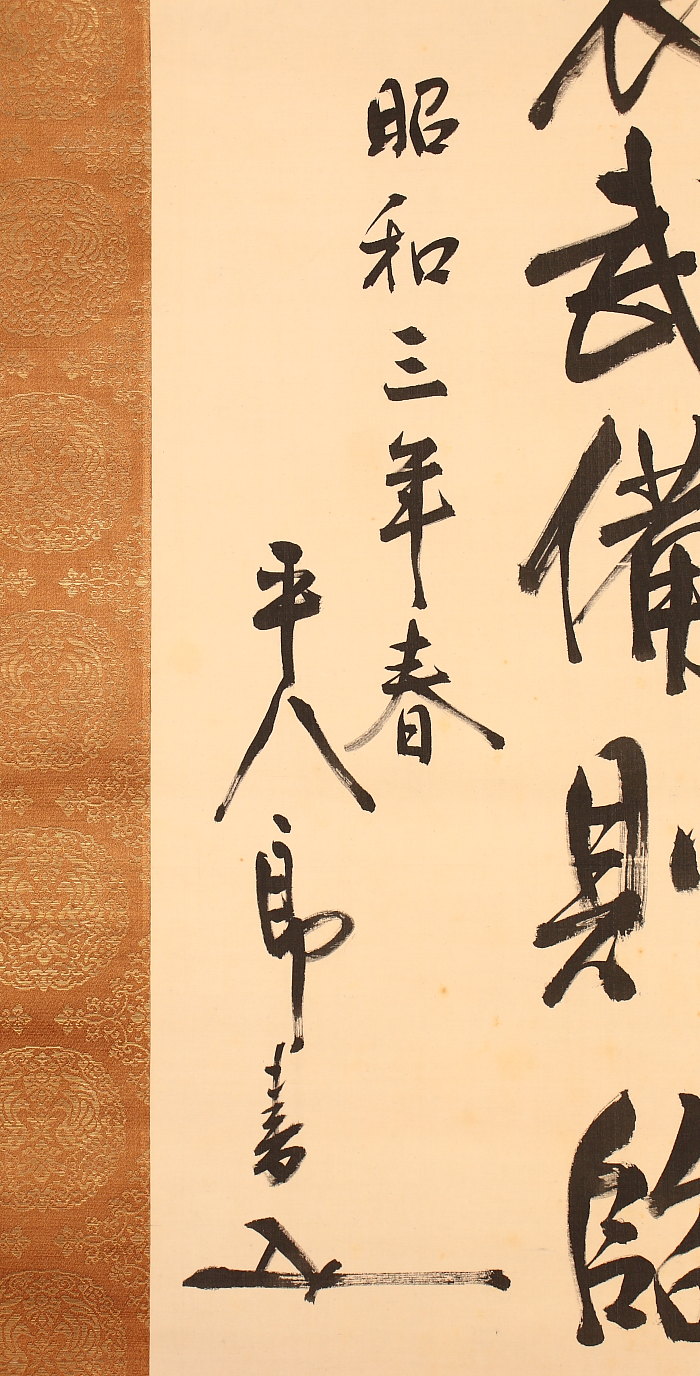 武備則
昭和三年春
平八郎書